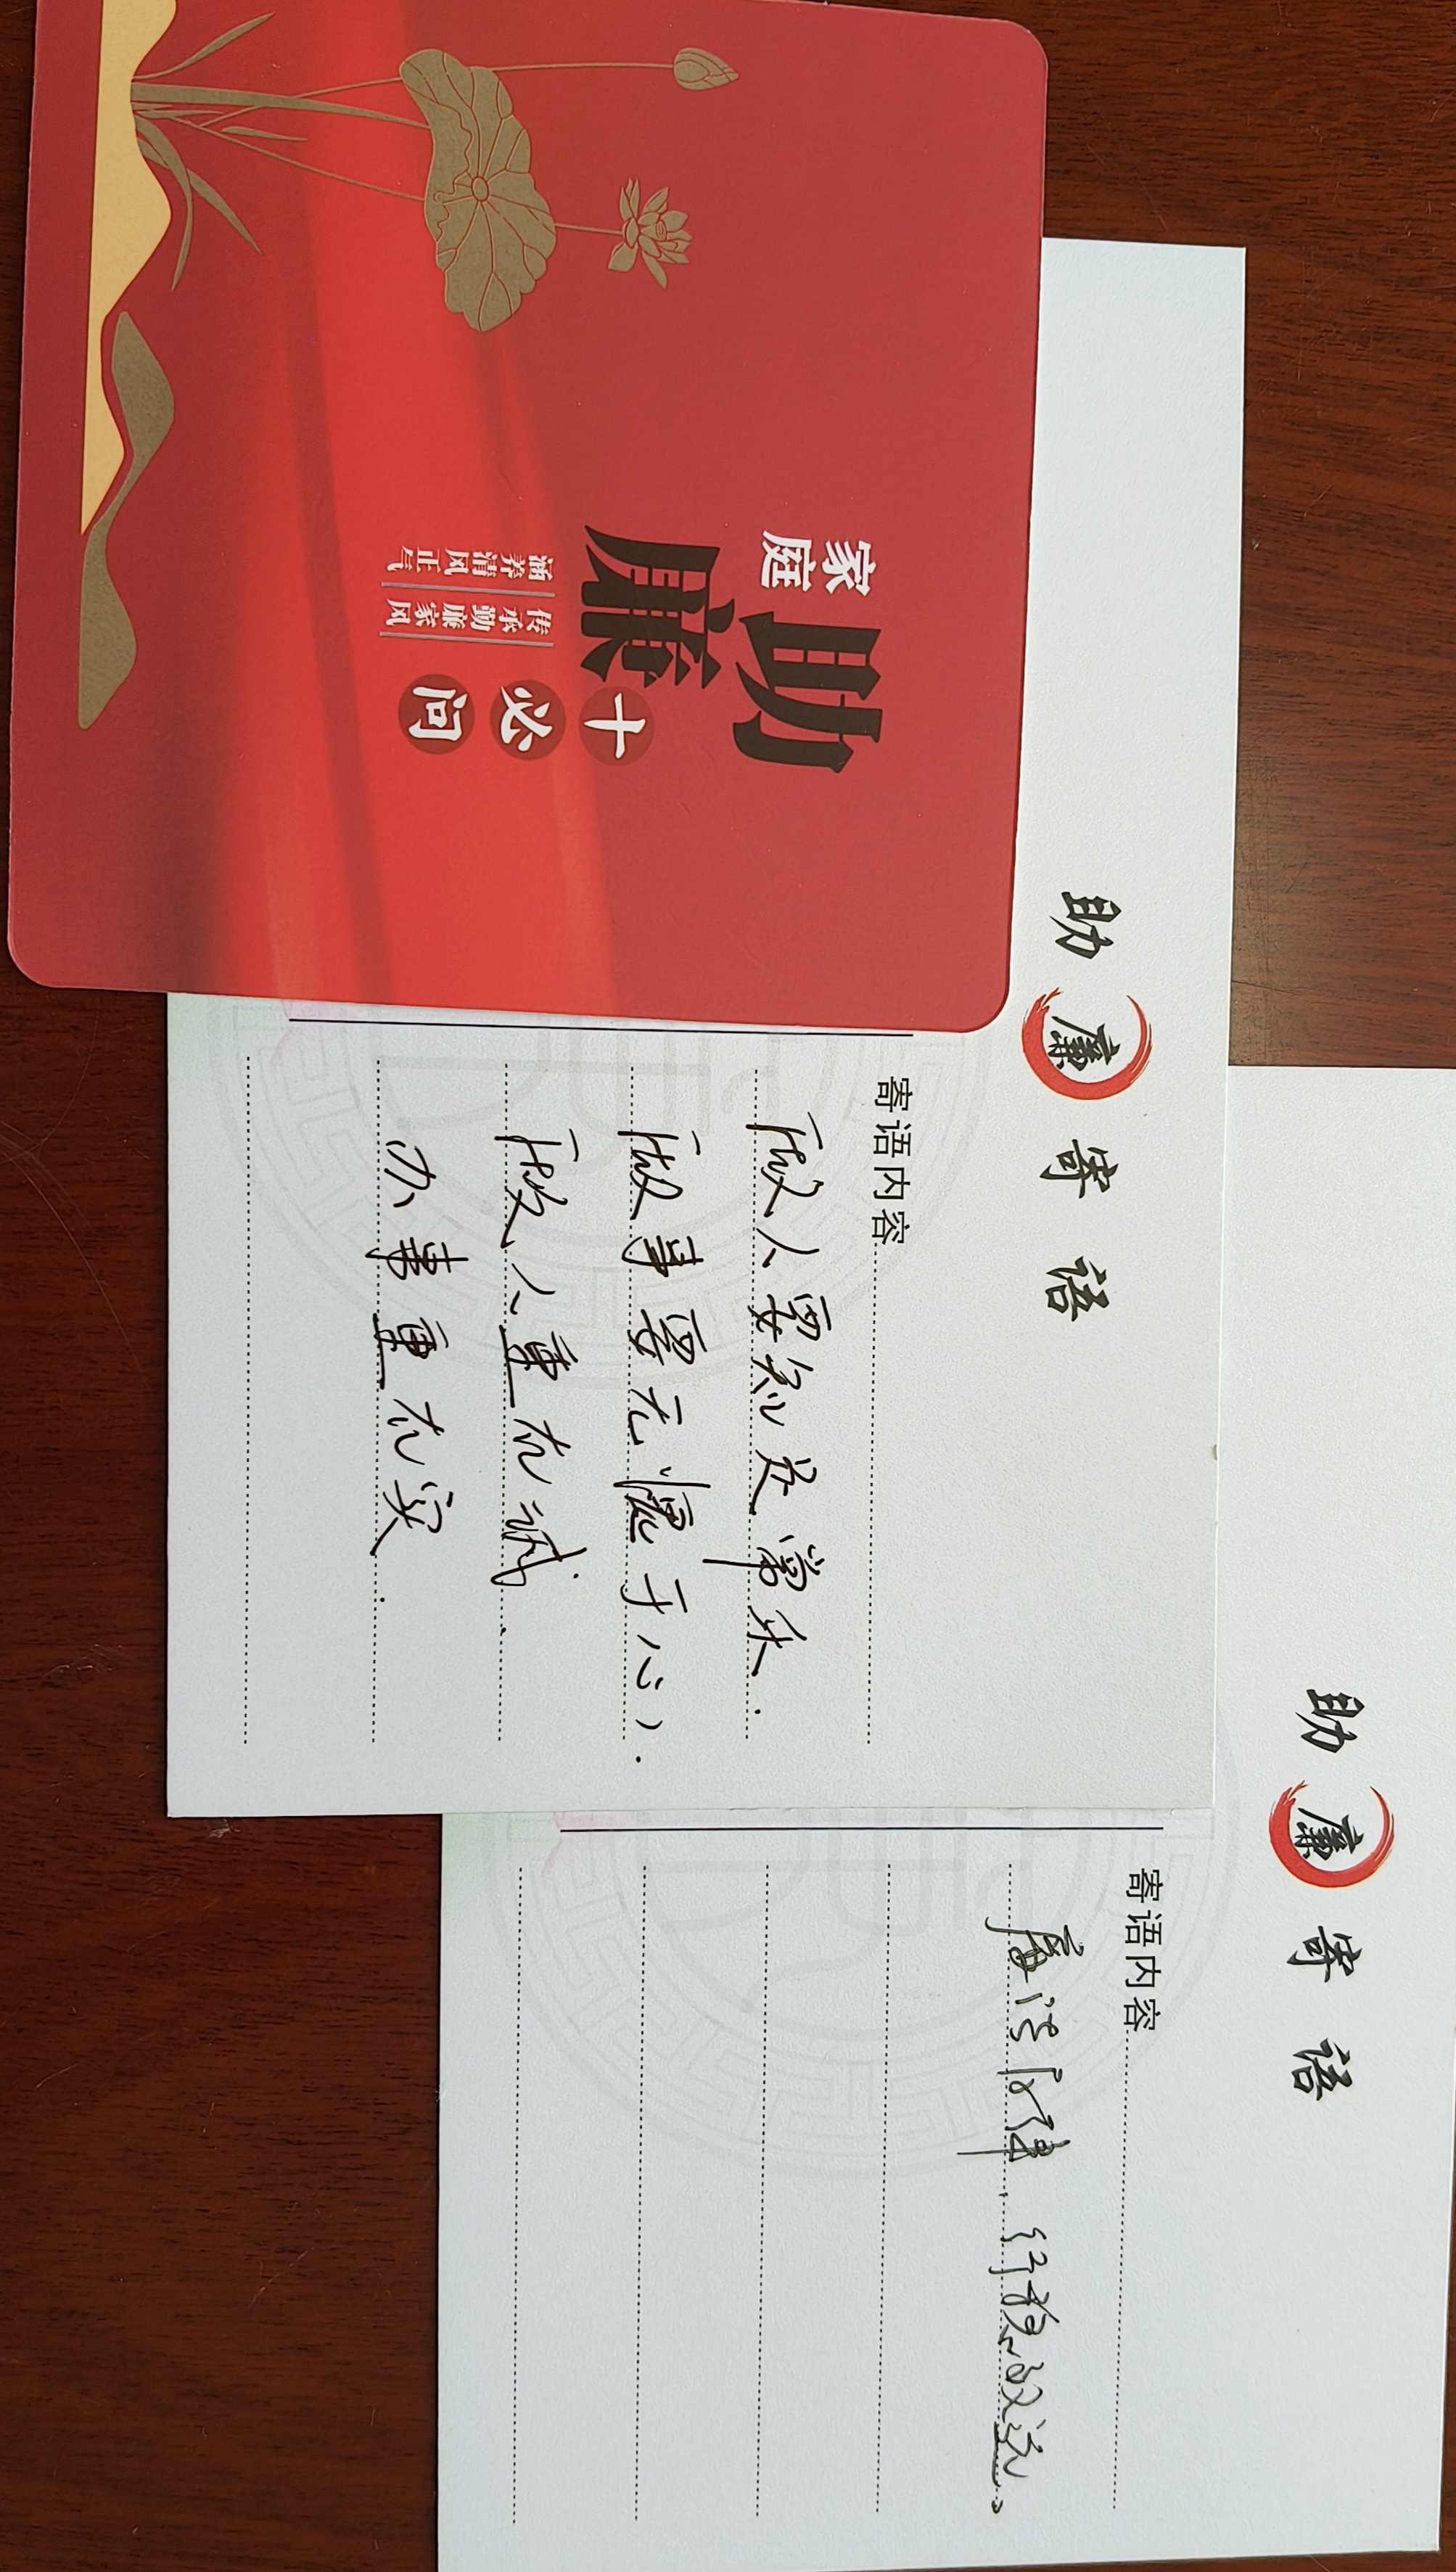 家庭
助廉
十必问
传承勤廉家风
涵养清风正气
助廉寄语
寄语内容
做人要知足常乐.
做事要无愧于心).
做人重在诚.
办事重在实.
助廉寄语
寄语内容
廉洁自律，行稳致远。